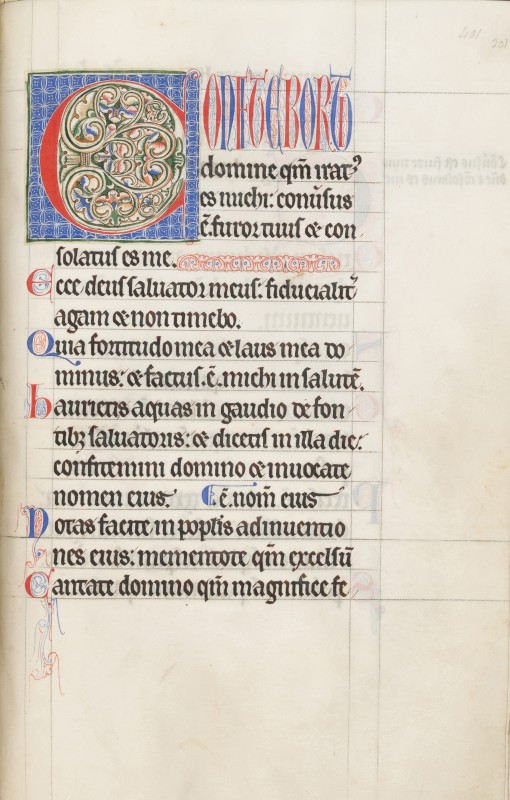 CONFITEBORT̅
domine qm̅ irat᷒
es michi: conu̅sus
e̅. furor tuus & con
solatus es me.
Ecce deus saluator meus: fiducialit̅
agam & non timebo.
Quia fortitudo mea & laus mea do
minus: & factus. e̅. michi in salute̅.
haurietis aquas in gaudio de fon
tibꝫ saluatoris: & dicetis in illa die:
confitemini domino & inuocate
nomen eius: e̅. nom̅ eius
Notas facite in poplis̅ adinuentio
nes eius: mementote qm̅ excelsu̅
Cantate domino qm̅ magnifice fe